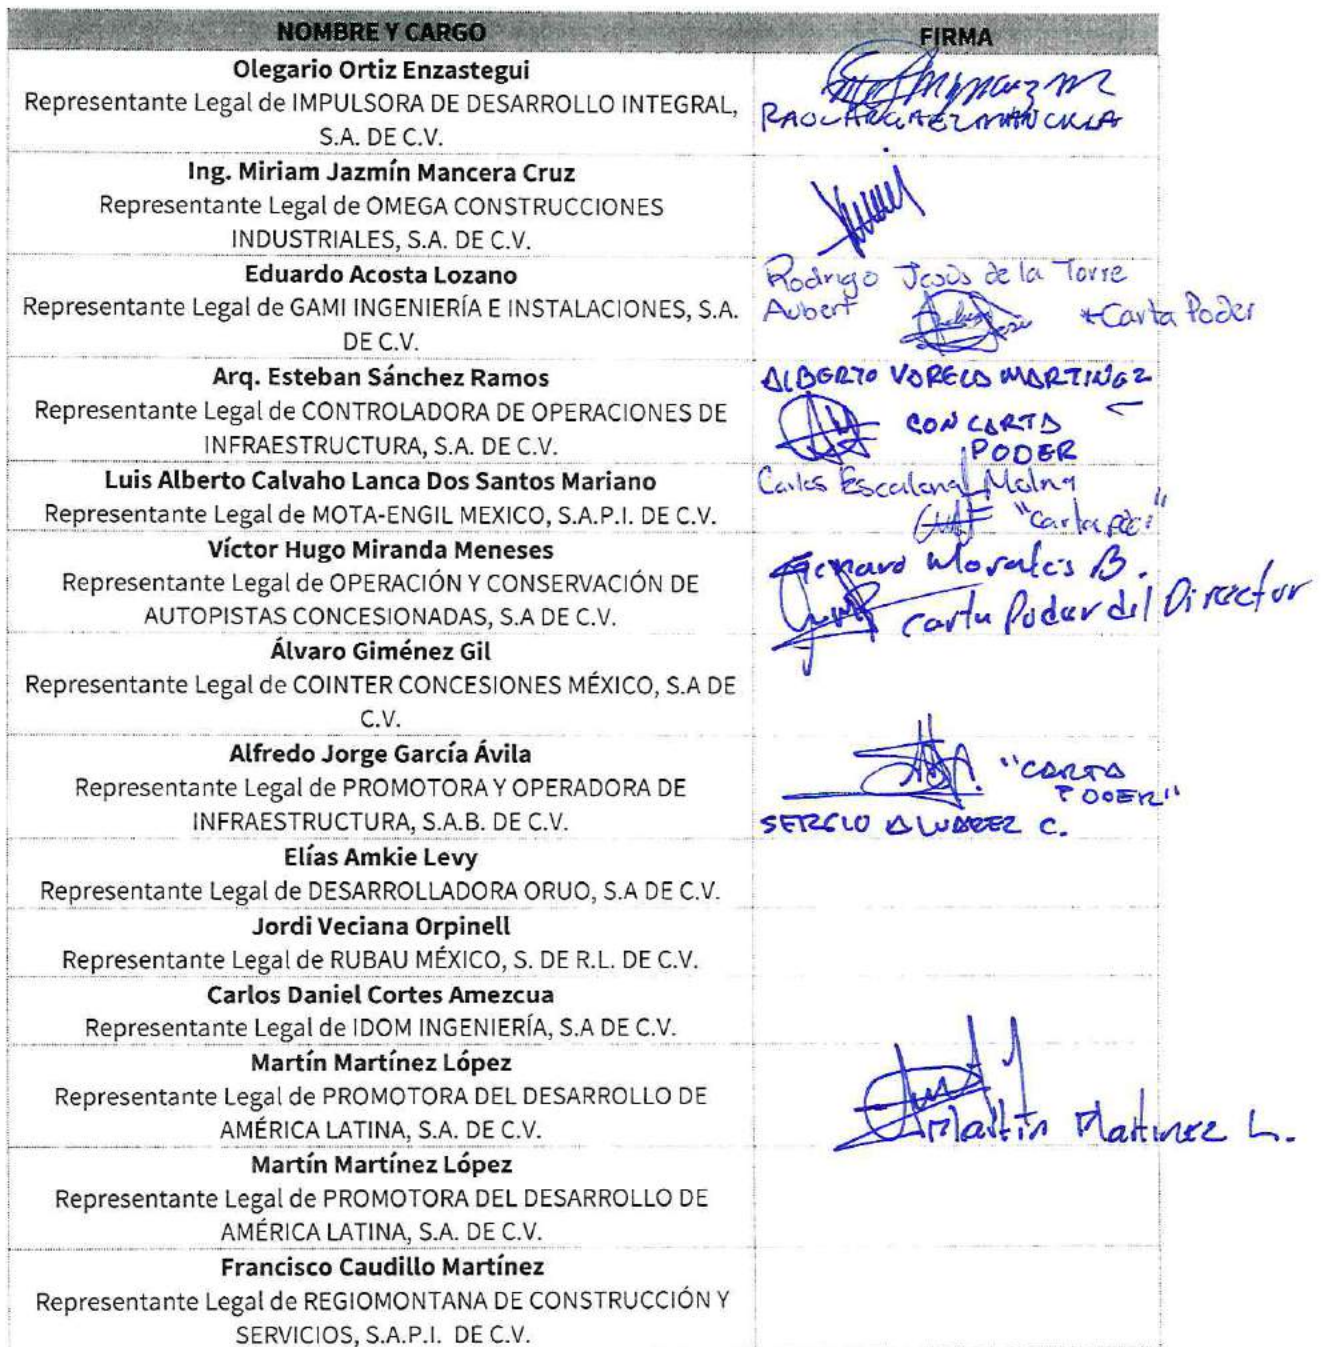 NOMBRE Y CARGO FIRMA
Olegario Ortiz Enzastegui
Representante Legal de IMPULSORA DE DESARROLLO INTEGRAL,
S.A. DE C.V.
RAUL ARGAEZ MANCILLA
Ing. Miriam Jazmín Mancera Cruz
Representante Legal de OMEGA CONSTRUCCIONES
INDUSTRIALES, S.A. DE C.V.
Eduardo Acosta Lozano
Representante Legal de GAMI INGENIERÍA E INSTALACIONES, S.A.
DE C.V.
Rodrigo Jesús de la Torre
Aubert *Carta Poder
Arq. Esteban Sánchez Ramos
Representante Legal de CONTROLADORA DE OPERACIONES DE
INFRAESTRUCTURA, S.A. DE C.V.
ALBERTO VARELA MARTINEZ
CON CARTA
PODER
Luis Alberto Calvaho Lanca Dos Santos Mariano
Representante Legal de MOTA-ENGIL MEXICO, S.A.P.I. DE C.V.
Carlos Escalona
"Carta poder"
Víctor Hugo Miranda Meneses
Representante Legal de OPERACIÓN Y CONSERVACIÓN DE
AUTOPISTAS CONCESIONADAS, S.A DE C.V.
Genaro Morales B.
Carta Poder del Director
Álvaro Giménez Gil
Representante Legal de COINTER CONCESIONES MÉXICO, S.A DE
C.V.
Alfredo Jorge García Ávila
Representante Legal de PROMOTORA Y OPERADORA DE
INFRAESTRUCTURA, S.A.B. DE C.V.
"CARTA
PODER"
SERGIO ALVAREZ C.
Elías Amkie Levy
Representante Legal de DESARROLLADORA ORUO, S.A DE C.V.
Jordi Veciana Orpinell
Representante Legal de RUBAU MÉXICO, S. DE R.L. DE C.V.
Carlos Daniel Cortes Amezcua
Representante Legal de IDOM INGENIERÍA, S.A DE C.V.
Martín Martínez López
Representante Legal de PROMOTORA DEL DESARROLLO DE
AMÉRICA LATINA, S.A. DE C.V.
Martin Martinez L.
Martín Martínez López
Representante Legal de PROMOTORA DEL DESARROLLO DE
AMÉRICA LATINA, S.A. DE C.V.
Francisco Caudillo Martínez
Representante Legal de REGIOMONTANA DE CONSTRUCCIÓN Y
SERVICIOS, S.A.P.I. DE C.V.